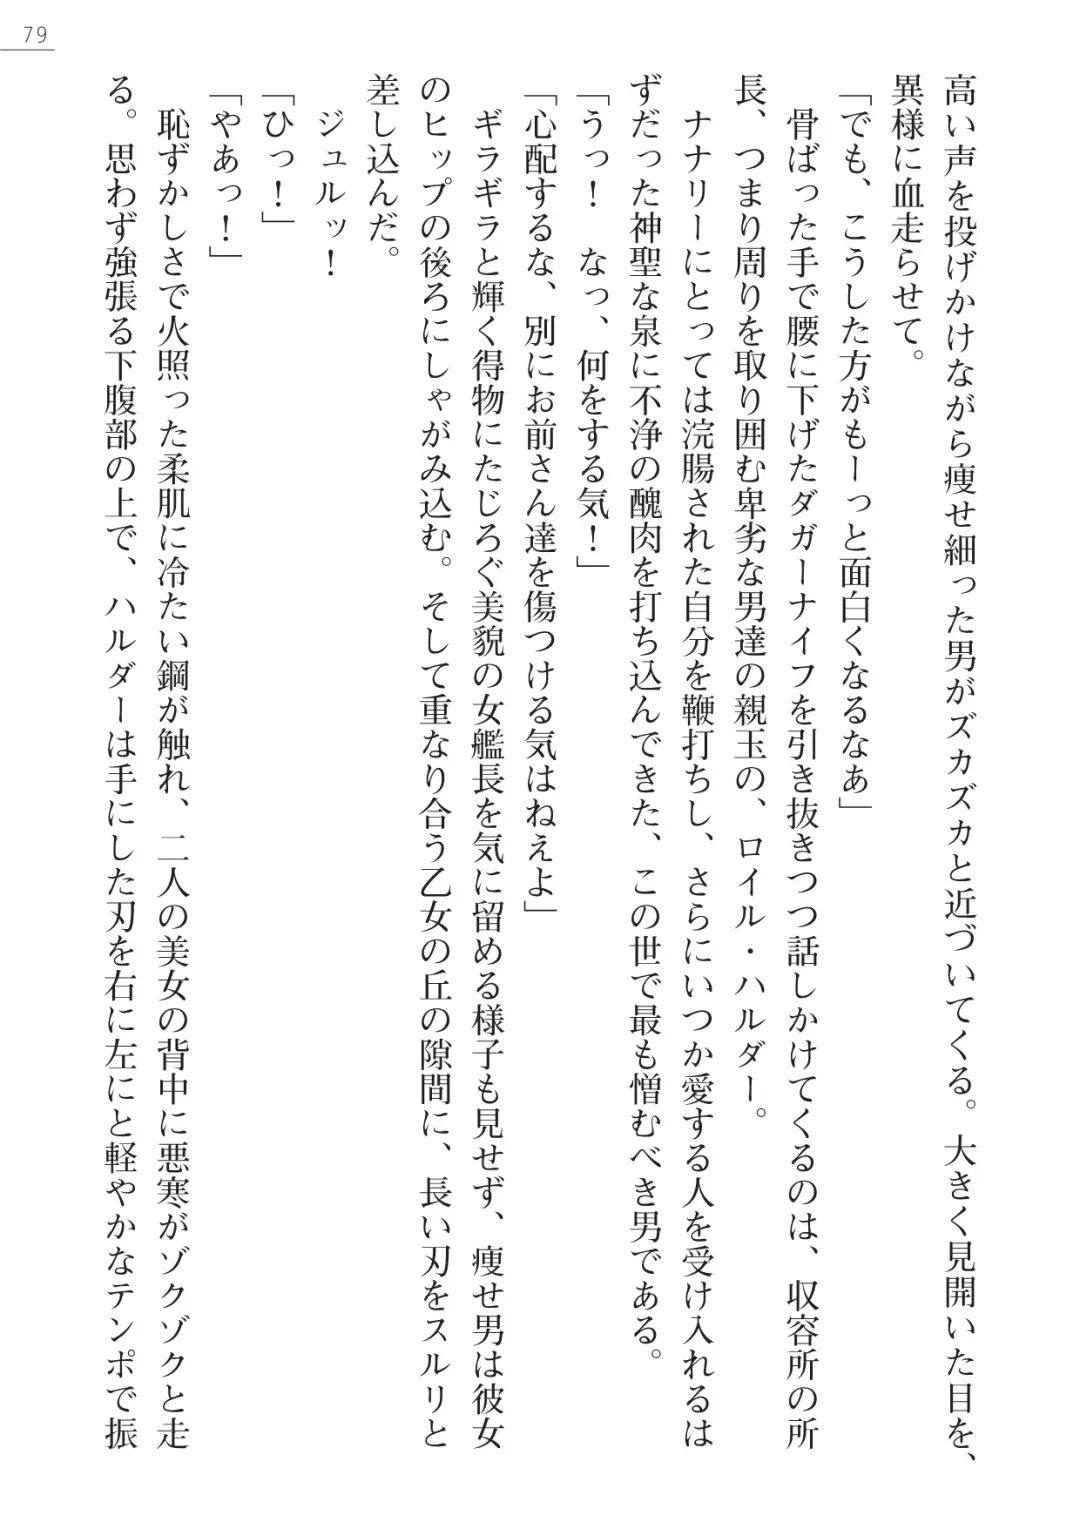 79
高い声を投げかけながら痩せ細った男がズカズカと近づいてくる。大きく見開いた目を、
異様に血走らせて。
「でも、こうした方がもーっと面白くなるなぁ」
骨ばった手で腰に下げたダガーナイフを引き抜きつつ話しかけてくるのは、収容所の所
長、つまり周りを取り囲む卑劣な男達の親玉の、ロイル・ハルダー。
ナナリーにとっては浣腸された自分を鞭打ちし、さらにいつか愛する人を受け入れるは
ずだった神聖な泉に不浄の醜肉を打ち込んできた、この世で最も憎むべき男である。
「うっ！　なっ、何をする気！」
「心配するな、別にお前さん達を傷つける気はねえよ」
ギラギラと輝く得物にたじろぐ美貌の女艦長を気に留める様子も見せず、痩せ男は彼女
のヒップの後ろにしゃがみ込む。そして重なり合う乙女の丘の隙間に、長い刃をスルリと
差し込んだ。
ジュルッ！
「ひっ！」
「やあっ！」
恥ずかしさで火照った柔肌に冷たい鋼が触れ、二人の美女の背中に悪寒がゾクゾクと走
る。思わず強張る下腹部の上で、ハルダーは手にした刃を右に左にと軽やかなテンポで振